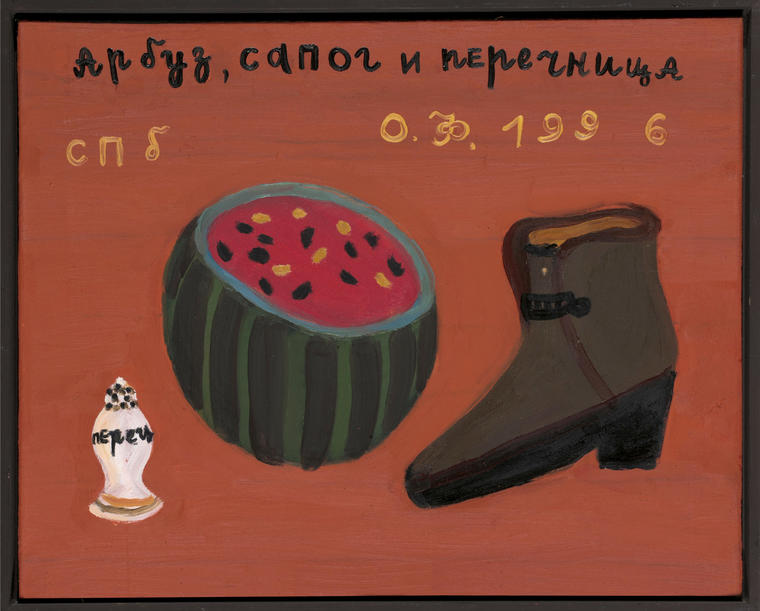 Арбуз, сапог и перечница
спб О.Ф. 1996
перец